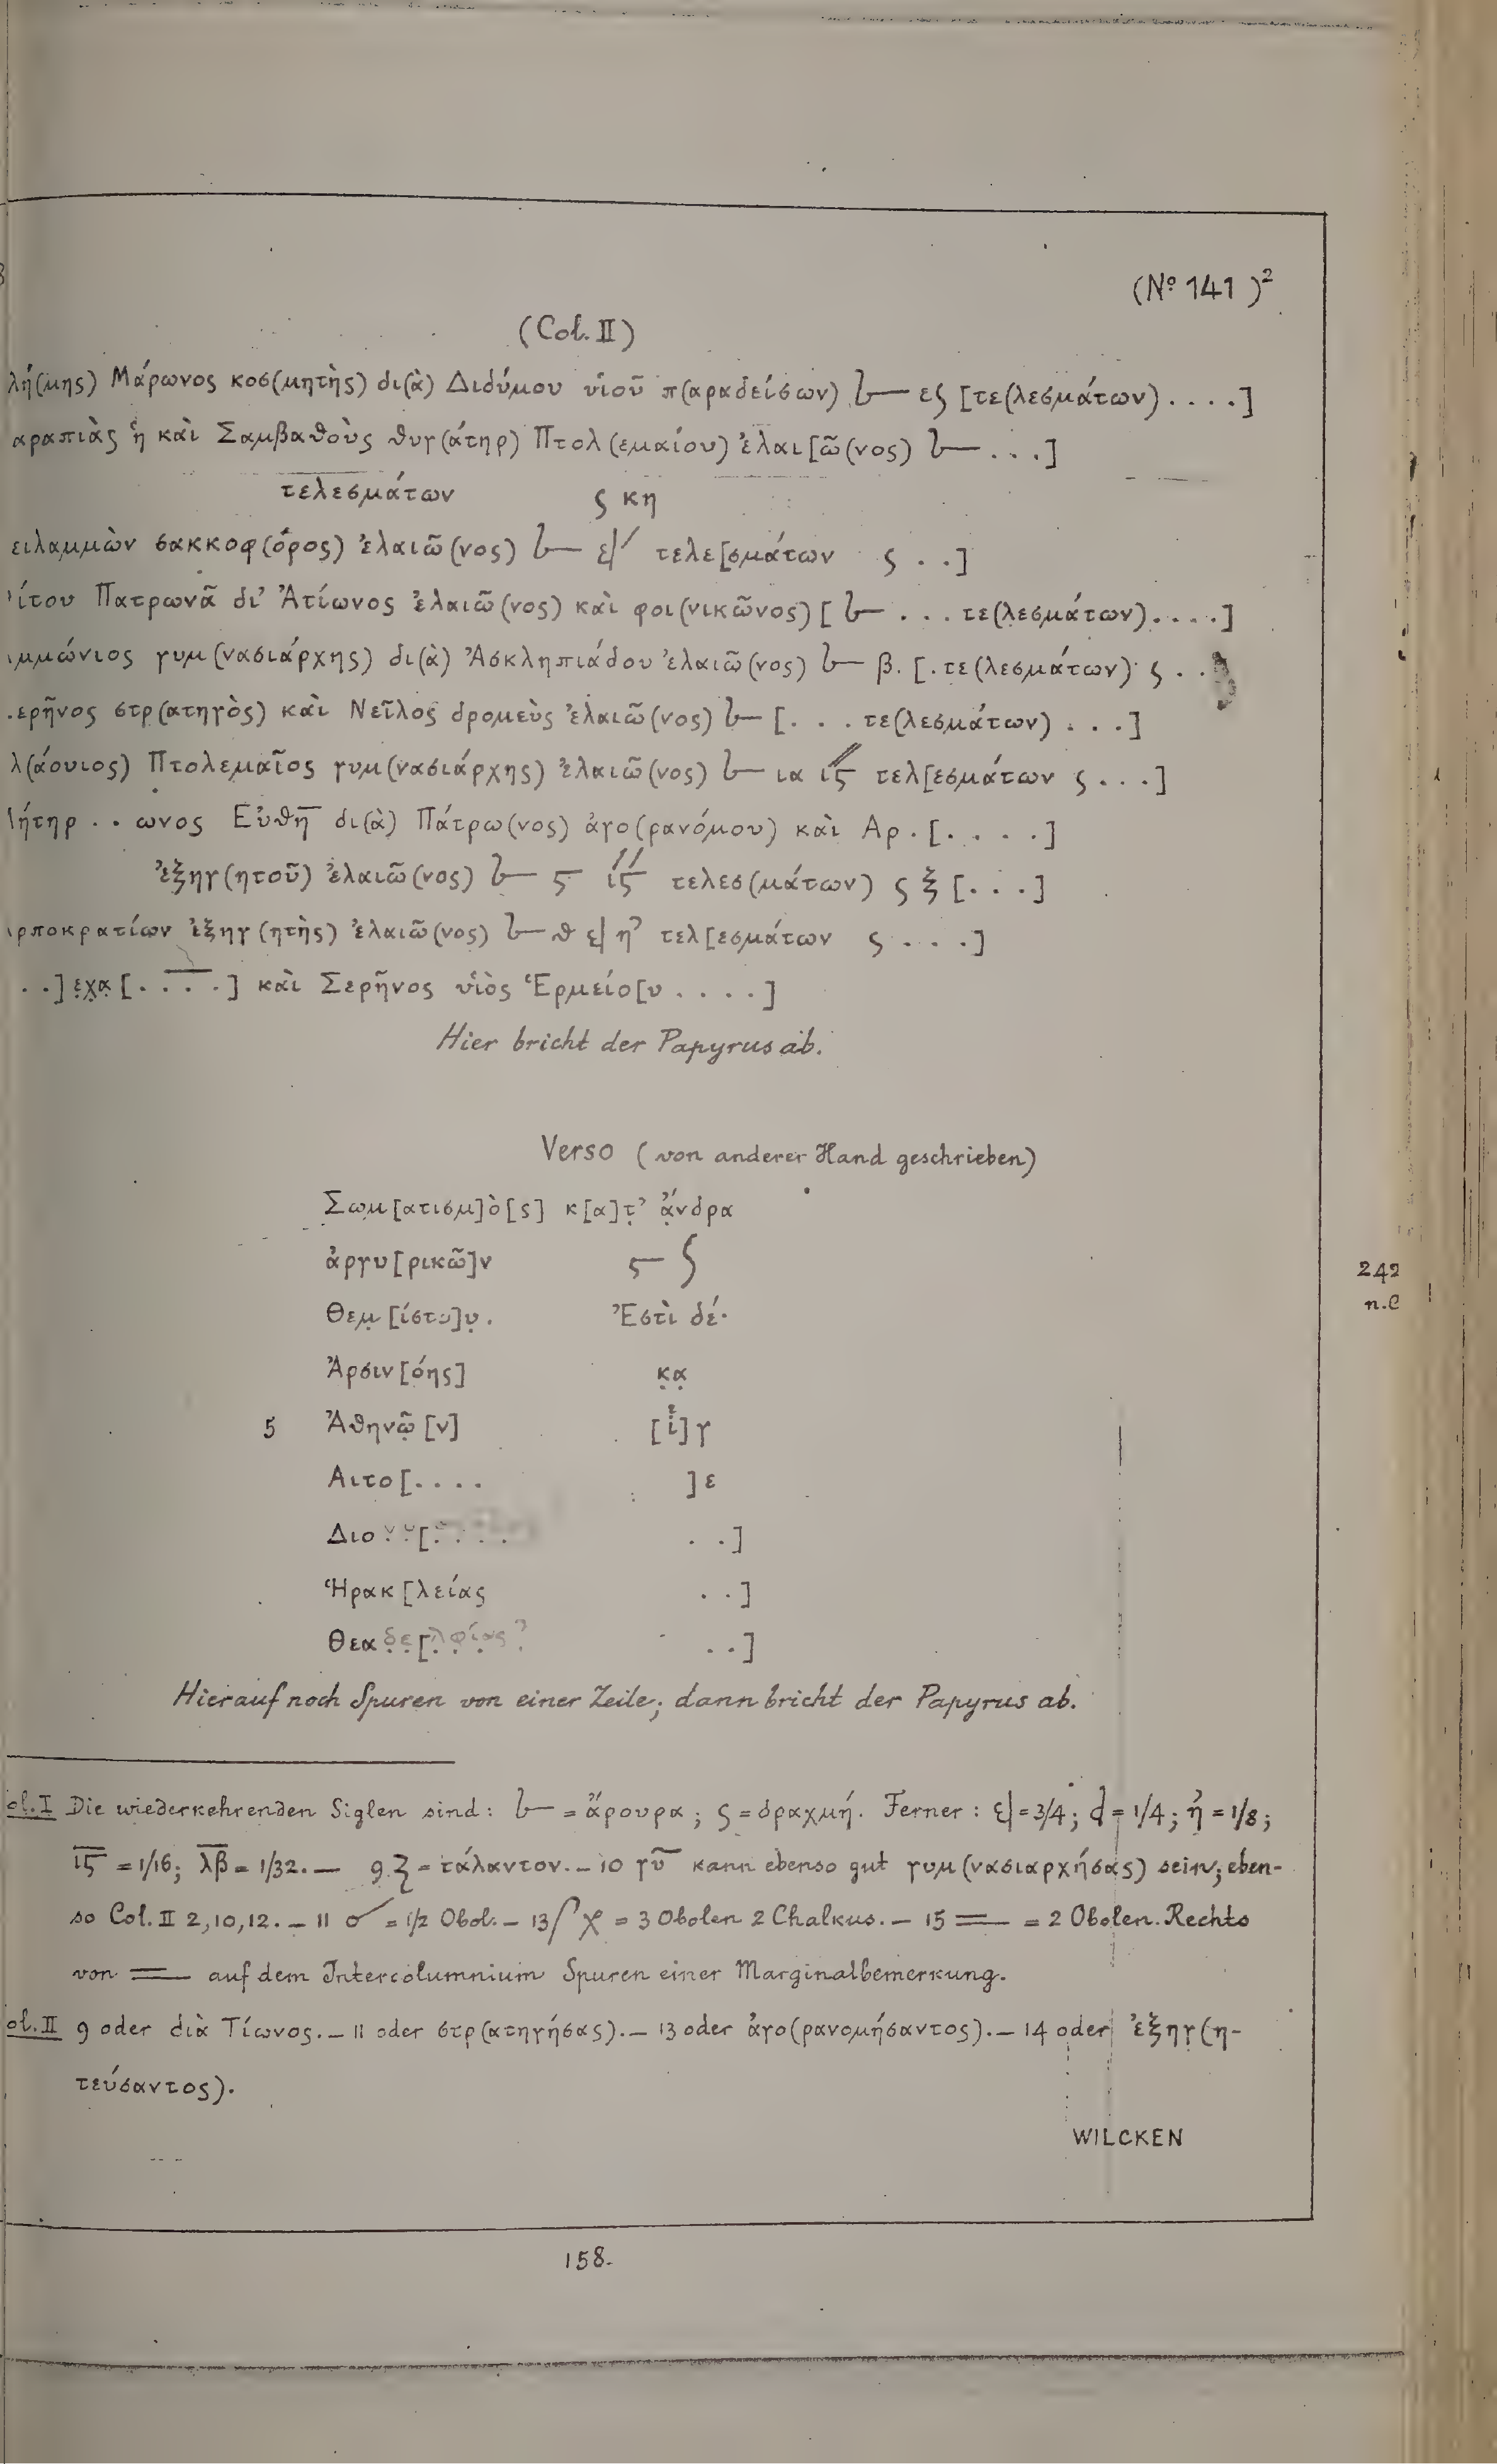 (No 141)²
(Col. II)
λή(μης) Μάρωνος κοσ(μητὴς) δι(ὰ) Διδύμου υἱοῦ π(αραδείσων) 𐅵— ες [τε(λεσμάτων) . . . .]
αραπιὰς ἡ καὶ Σαμβαθοὺς θυγ(άτηρ) Πτολ(εμαίου) ἐλαι[ῶ(νος) — . . .]
τελεσμάτων ς κη
ειλαμμὼν σακκοφ(όρος) ἐλαιῶ(νος) — τελε[σμάτων ς . .]
ίτου Πατρωνᾶ δι’ Ἀτίωνος ἐλαιῶ(νος) καὶ φοι(νικῶνος) [ — . . . τε(λεσμάτων) . . . .]
μμώνιος γυμ(νασιάρχης) δι(ὰ) Ἀσκληπιάδου ἐλαιῶ(νος) — β. [. τε(λεσμάτων) ς . .
.ερῆνος στρ(ατηγὸς) καὶ Νεῖλος δρομεὺς ἐλαιῶ(νος) — [. . . τε(λεσμάτων) . . .]
λ(άουιος) Πτολεμαῖος γυμ(νασιάρχης) ἐλαιῶ(νος) — ια ις τελ[εσμάτων ς . . .]
ήτηρ . . ωνος Εὐθη δι(ὰ) Πάτρω(νος) ἀγο(ρανόμου) καὶ Αρ . [. . . .]
ἐξηγ(ητοῦ) ἐλαιῶ(νος) — ς ις τελεσ(μάτων) ς ξ [. . .]
ρποκρατίων ἐξηγ(ητὴς) ἐλαιῶ(νος) — θ η τελ[εσμάτων ς . . . .]
. .] εχα [. . . .] καὶ Σερῆνος υἱὸς Ἑρμείο[υ . . . .]
Hier bricht der Papyrus ab.
Verso (von anderer Hand geschrieben)
Σωμ[ατισμ]ὸ[ς] κ[α]τ’ ἄνδρα
ἀργυ[ρικῶ]ν ς ʃ
Θεμ[ίστο]υ. Ἐστὶ δέ·
Ἀρσιν[όης] κα
5 Ἀθηνῶ[ν] [ι]γ
Αιτο[. . . . ]ε
Διον̣ν̣[. . . . . .]
Ἡρακ[λείας . .]
Θεαδε[λφίας? . .]
Hierauf noch Spuren von einer Zeile; dann bricht der Papyrus ab.
242
n. C
ol. I Die wiederkehrenden Siglen sind: — = ἄρουρα; ς = δραχμή. Ferner: = 3/4; d = 1/4; ή = 1/8;
ις = 1/16; λβ = 1/32. — 9. = τάλαντον. — 10 γυ kann ebenso gut γυμ(νασιαρχήσας) sein; eben-
so Col. II 2, 10, 12. — 11 = 1/2 Obol. — 13 ʃ χ = 3 Obolen 2 Chalkus. — 15 = = 2 Obolen. Rechts
von = auf dem Intercolumnium Spuren einer Marginalbemerkung.
ol. II 9 oder διὰ Τίωνος. — 11 oder στρ(ατηγήσας). — 13 oder ἀγο(ρανομήσαντος). — 14 oder ἐξηγ(η-
τεύσαντος).
WILCKEN
158.